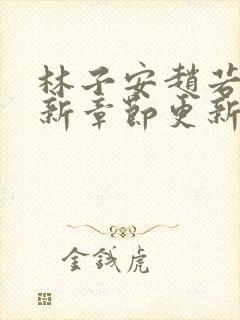 林子安趙若
新章節更新
金錢虎